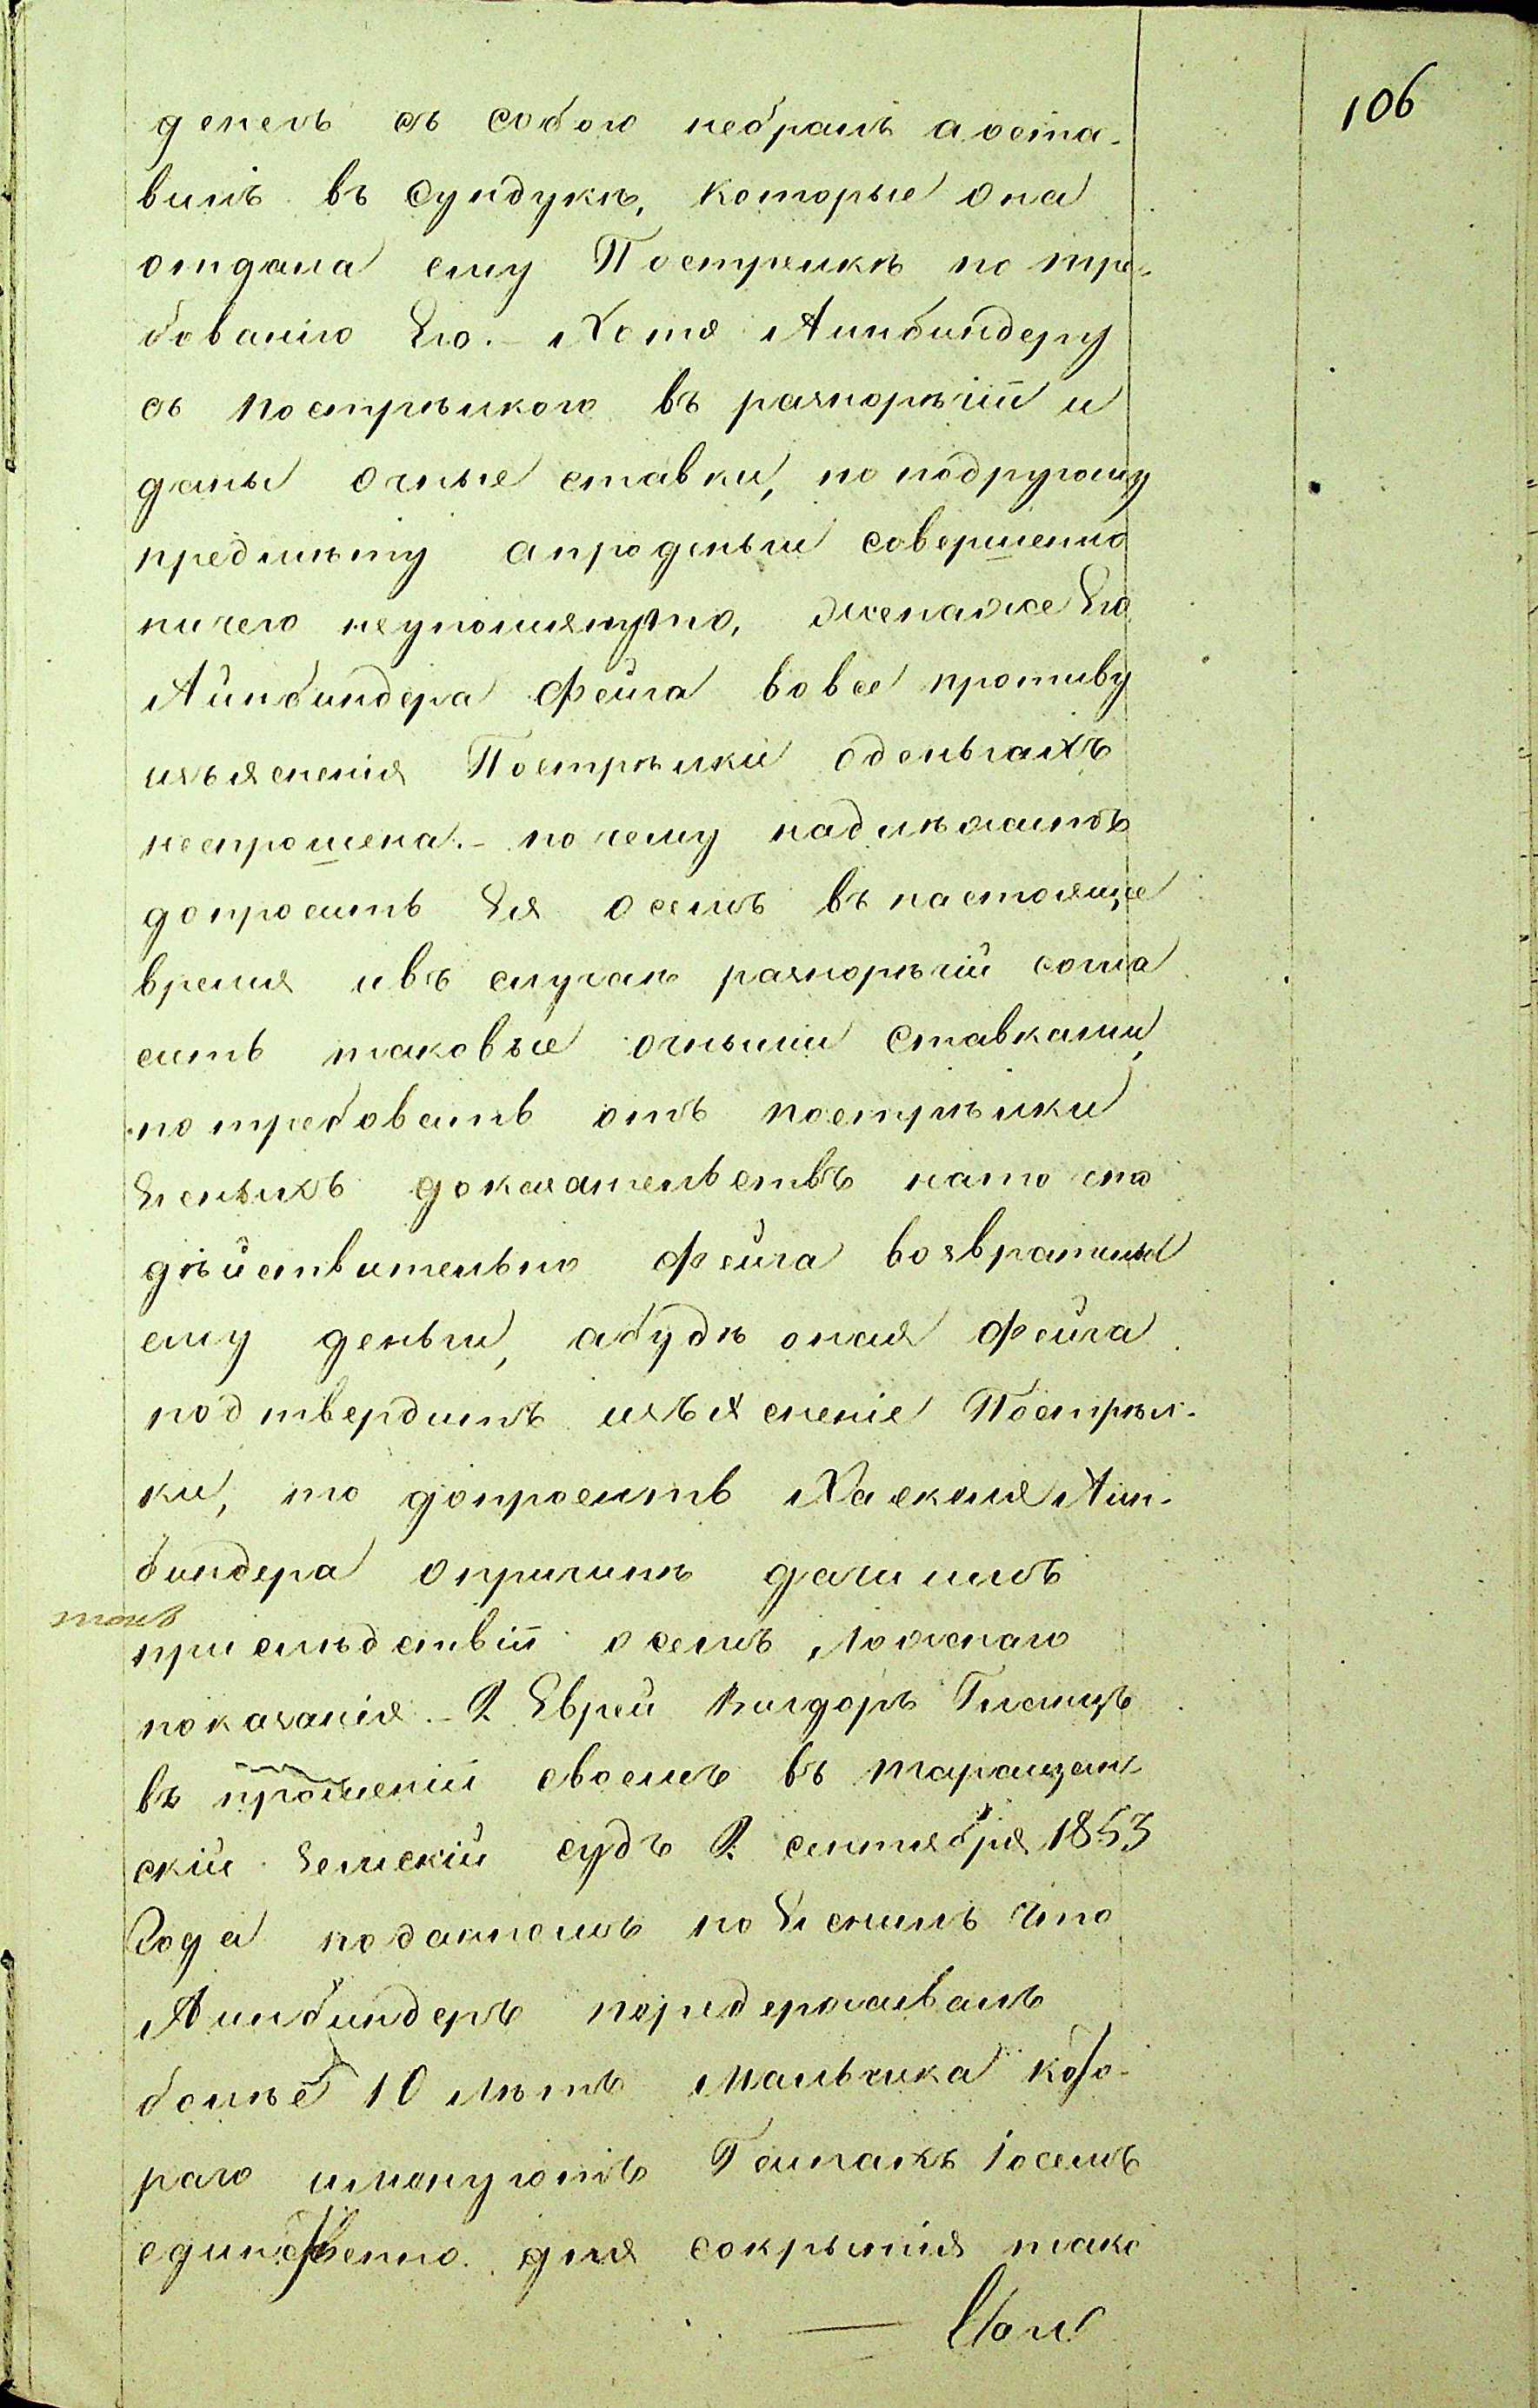 106
денегъ съ собою небралъ а оста-
вилъ въ сундукѣ, которые она
отдала ему Пострелкѣ по тре-
бованію Его. – Хотя Аинбиндеру
съ пострѣлкою въ разнорѣчіи и
даны очные ставки, но подругому
предмѣту апроденьги совершенно
ничего неупомянуто, женаже Его
Айнбиндера Фейга вовсе противу
изъясненія Пострѣлки оденьгахъ
неспрошена. – по чему надлѣжитъ
допросить Ея осемъ въ настоящее
время ивъ случаѣ разнорѣчій согла
сить таковые очными ставками,
потребовать отъ пострѣлки
Ясныхъ доказательствъ нато что
дѣйствительно Фейга возвратила
ему деньги, абудѣ оная Фейга
подтвердитъ изъясненіе Пострѣл-
ки, то допросить Хаскеля Аин-
биндера опричинѣ дачи имъ
при слѣдствіи осемъ ложнаго
показанія. – 2. Еврей Вигдоръ
въ прошеніи своемъ въ таращан-
скій Земскій судъ 2. сентября 1853
Года поданномъ поЯснилъ что
Аинбиндеръ передерживалъ
болѣе 10 лѣтъ мальчика кото-
раго именуютъ Іосемъ
единственно для сокрытія тако